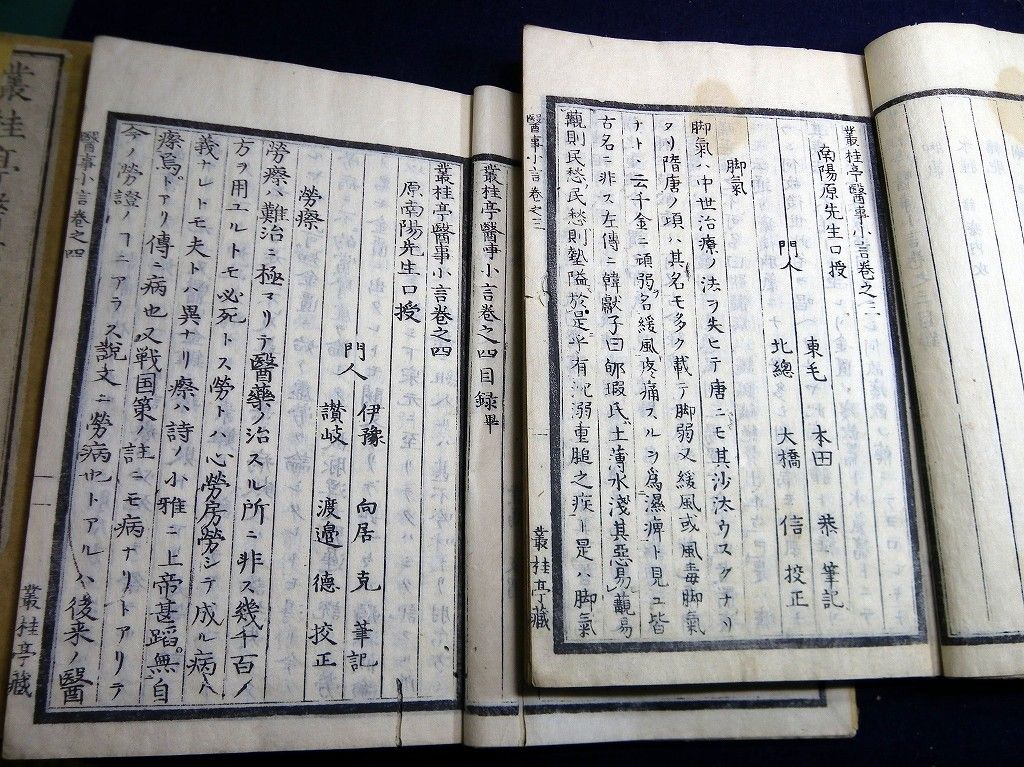 叢桂亭醫事小言卷之三
南陽原先生口授
東毛 本田 恭 筆記
門人
北總 大橋 信 挍正
脚氣
脚氣ハ中世治療ノ法ヲ失ヒテ唐ニモ其沙汰ウスクナリ
タリ隋唐ノ頃ハ其名モ多ク載テ脚弱又緩風或風毒脚氣
ナト云千金ニ頑弱名緩風疼痛スルヲ爲濕痺ト見ユ皆
古名ニ非ス左傳ニ韓獻子曰郇瑕氏土薄水淺其惡易觏易
觏則民愁民愁則墊隘於是乎有沈溺重膇之疾ト是ハ脚氣
醫事小言 卷之三
叢桂亭藏
叢桂亭醫事小言卷之四目録畢
叢桂亭醫事小言卷之四
原南陽先生口授
伊豫 向居 克 筆記
門人
讃岐 渡邉 德 挍正
勞瘵
勞瘵ハ難治ニ極マリテ醫藥ノ治スル所ニ非ス幾千百ノ
方ヲ用ユルトモ必死トス勞トハ心勞房勞シテ成ル病ハ
義ナレトモ夫トハ異ナリ瘵ハ詩ノ小雅ニ上帝甚蹈無自
瘵焉トアリ傳ニ病也又戰国策ノ註ニモ病ナリトアリテ
今ノ勞證ノコニアラス說文ニ勞病也トアルハ後来ノ醫
醫事小言卷之四
叢桂亭藏
叢桂亭